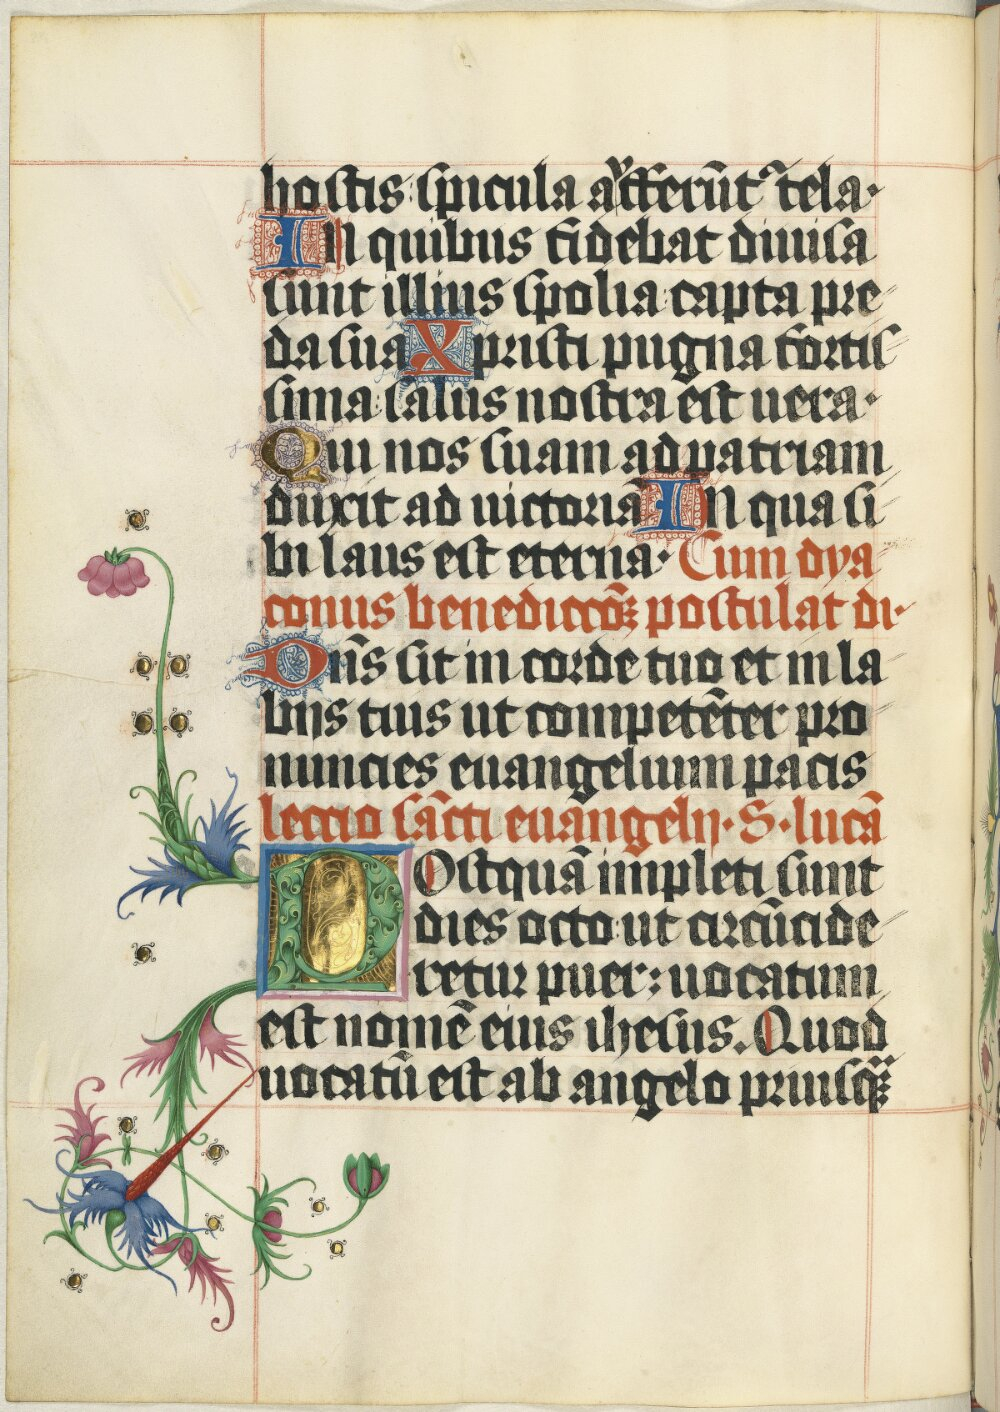 hostis spicula a͛fferūt᷑ tela·
In quibus fidebat diuisa
sunt illius spolia capta pre
da sua Xpristi pugna fortis
sima salus nostra est uera·
Qui nos suam ad patriam
duxit ad uictoriā In qua si
bi laus est eterna· Cum dya
conus benediccōꝫ postulat di·
Dn̄s sit in corde tuo et in la
bijs tuis ut competēter pro
nuncies euangelium pacis
lectio sācti euangelij·S·lucā
Postquā impleti sunt
dies octo ut circūcide
retur puer; uocatum
est nomē eius ihesus. Quod
uocatū est ab angelo priusqꝫ̄